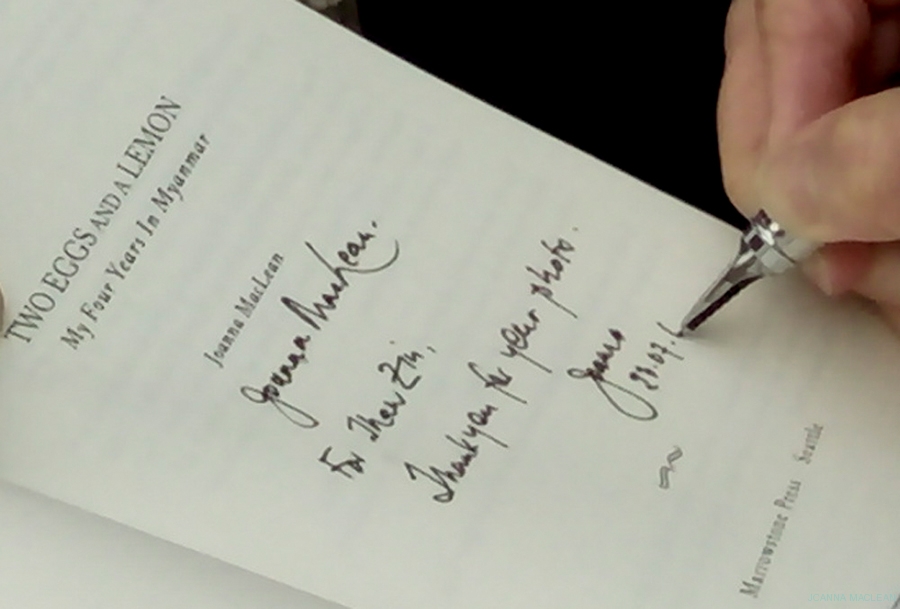 TWO EGGS AND A LEMON
My Four Years In Myanmar
Joanna MacLean
Joanna MacLean.
For Thaw Zin,
Thank you for your photo.
23.07.
Marrowstone Press Seattle
JOANNA MACLEAN